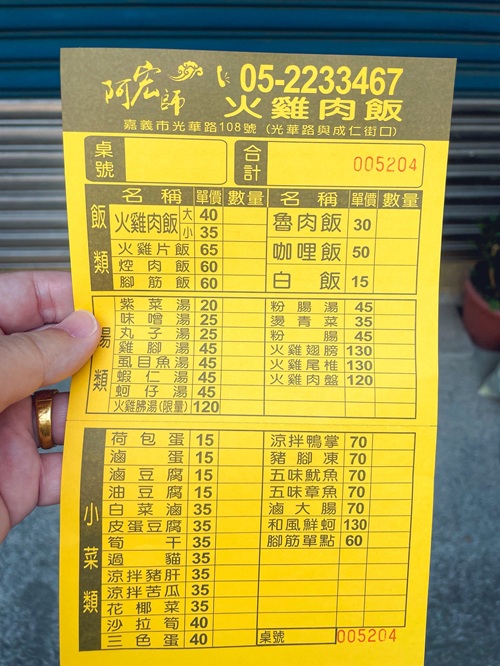 阿宏師
05-2233467
火雞肉飯
嘉義市光華路108號 (光華路與成仁街口)
桌號 合計 005204
名稱 單價 數量 名稱 單價 數量
飯類
火雞肉飯 大 40
小 35
火雞片飯 65
焢肉飯 60
腳筋飯 60
魯肉飯 30
咖哩飯 50
白飯 15
湯類
紫菜湯 20
味噌湯 25
丸子湯 25
雞腳湯 45
虱目魚湯 45
蝦仁湯 45
蚵仔湯 45
火雞胇湯(限量) 120
粉腸湯 45
燙青菜 35
粉腸 45
火雞翅膀 130
火雞尾椎 130
火雞肉盤 120
小菜類
荷包蛋 15
滷蛋 15
滷豆腐 15
油豆腐 15
白菜滷 35
皮蛋豆腐 35
筍干 35
過貓 35
涼拌豬肝 35
涼拌苦瓜 35
花椰菜 35
沙拉筍 40
三色蛋 40
涼拌鴨掌 70
豬腳凍 70
五味魷魚 70
五味章魚 70
滷大腸 70
和風鮮蚵 130
腳筋單點 60
桌號 005204